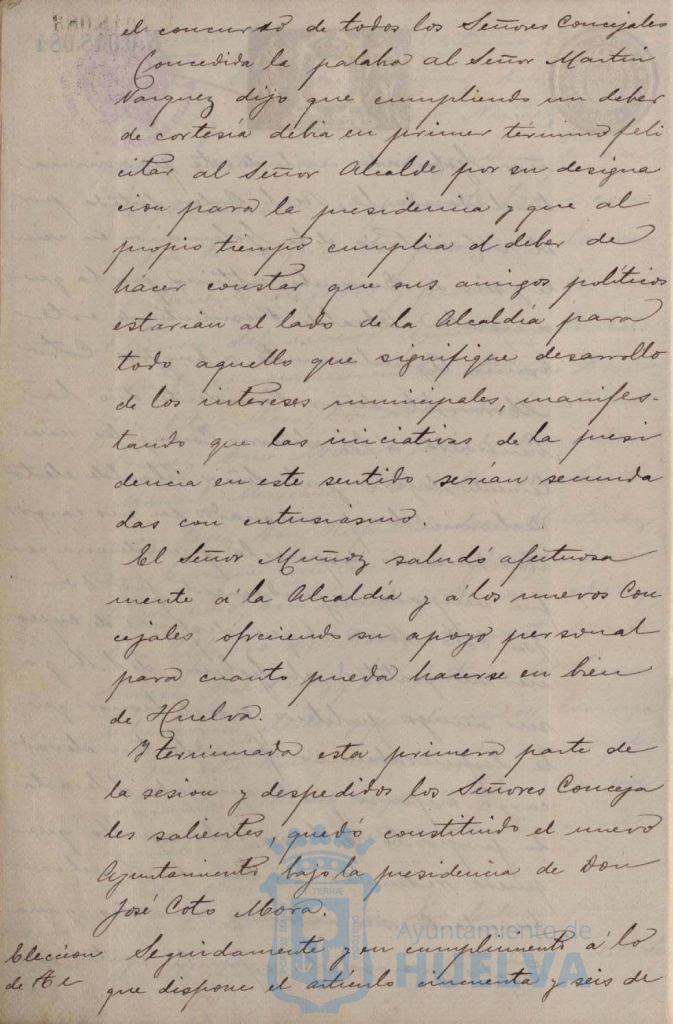 el concurso de todos los Señores Concejales
Concedida la palabra al Señor Martin
Vazquez dijo que cumpliendo un deber
de cortesía debia en primer término feli
citar al Señor Alcalde por su designa
cion para la presidencia y que al
propio tiempo cumplia el deber de
hacer constar que sus amigos políticos
estarían al lado de la Alcaldía para
todo aquello que signifique desarrollo
de los intereses municipales, manifes-
tando que las iniciativas de la presi
dencia en este sentido serían secunda
das con entusiasmo.
El Señor Muñoz saludó afectuosa
mente á la Alcaldía y á los nuevos Con
cejales ofreciendo su apoyo personal
para cuanto pueda hacerse en bien
de Huelva.
Y terminada esta primera parte de
la sesion y despedidos los Señores Conceja
les salientes, quedó constituido el nuevo
Ayuntamiento bajo la presidencia de Don
José Coto Mora.
Eleccion
de
Seguidamente y en cumplimiento á lo
que dispone el artículo cincuenta y seis de
Ayuntamiento de
HUELVA